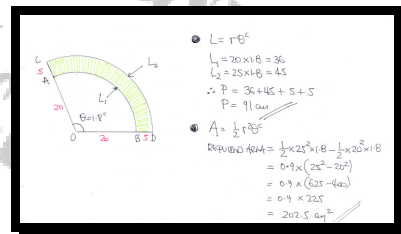 C
5
A
20
θ=1·8ᶜ
O
20
B 5 D
L₁
L₂
L = rθᶜ
L₁ = 20×1·8 = 36
L₂ = 25×1·8 = 45
∴ P = 36+45+5+5
P = 91 cm
A = ½r²θᶜ
REQUIRED AREA = ½×25²×1·8 - ½×20²×1·8
= 0·9×(25²-20²)
= 0·9×(625-400)
= 0·9×225
= 202·5 cm²